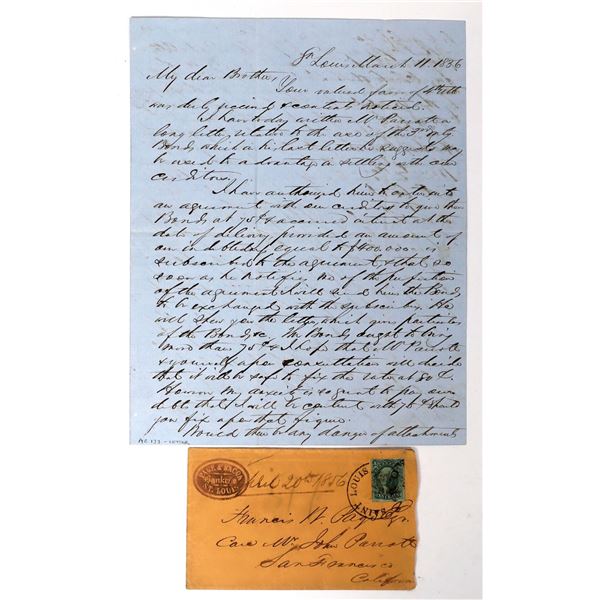 St Louis March 11. 1856
My dear Brother,
Your valued favor of
was duly received & contents noted.
I have today written Mr Parrott a
long letter relative to the use of the
Bonds which in his last letter he suggests may
be used to advantage in settling with our
creditors,
I have authorized him to enter into
an agreement with our creditors to give them
Bonds at 75 & accrued interest at the
date of delivery provided an amount of
our indebtedness equal to $400,000 is
subscribed to the agreement & that so
soon as he notifies me of the
of the agreement I will send him the Bonds
to be exchanged with the subscribers. He
will show you the letter which gives particulars
of the Bonds &c. The Bonds ought to be
more than 75 & I hope that Mr Parrott
& yourself upon consultation will decide
that it will be safe to fix the rate at 80 c.
However my anxiety is so great to pay our
debts that I will be content with 75 & should
you fix upon that figure.
Would there be any danger of attachments
AC 133 - LETTER
PAGE & BACON
Bankers
ST. LOUIS
April 20th 1856
SAINT LOUIS
Francis W. Page Esqr.
Care Mr. John Parrott
San Francisco
California